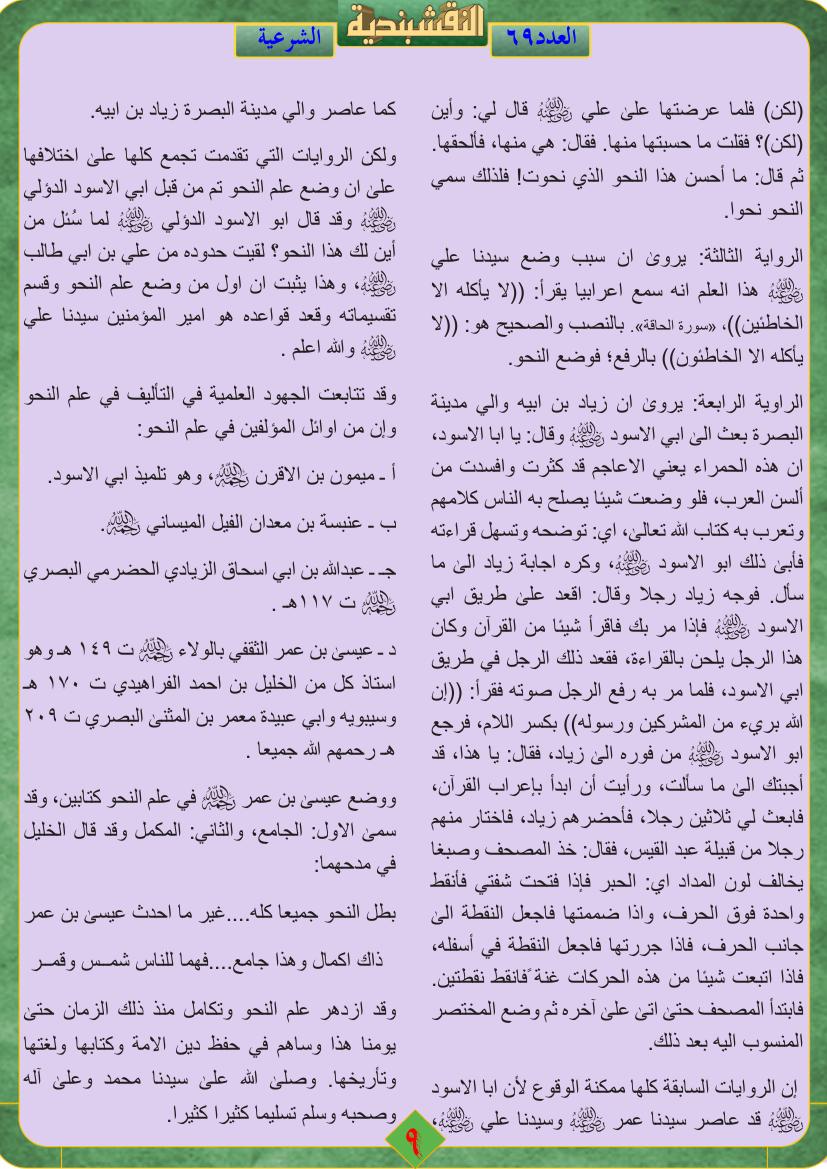 النقشبندية
العدد ٦٩
الشرعية
(لكن) فلما عرضتها علىٰ علي ﵁ قال لي: وأين
(لكن)؟ فقلت ما حسبتها منها. فقال: هي منها، فألحقها.
ثم قال: ما أحسن هذا النحو الذي نحوت! فلذلك سمي
النحو نحوا.
الرواية الثالثة: يروىٰ ان سبب وضع سيدنا علي
﵁ هذا العلم انه سمع اعرابيا يقرأ: ((لا يأكله الا
الخاطئين))، «سورة الحاقة». بالنصب والصحيح هو: ((لا
يأكله الا الخاطئون)) بالرفع؛ فوضع النحو.
الراوية الرابعة: يروىٰ ان زياد بن ابيه والي مدينة
البصرة بعث الىٰ ابي الاسود ﵁ وقال: يا ابا الاسود،
ان هذه الحمراء يعني الاعاجم قد كثرت وافسدت من
ألسن العرب، فلو وضعت شيئا يصلح به الناس كلامهم
وتعرب به كتاب الله تعالىٰ، اي: توضحه وتسهل قراءته
فأبىٰ ذلك ابو الاسود ﵁، وكره اجابة زياد الىٰ ما
سأل. فوجه زياد رجلا وقال: اقعد علىٰ طريق ابي
الاسود ﵁ فإذا مر بك فاقرأ شيئا من القرآن وكان
هذا الرجل يلحن بالقراءة، فقعد ذلك الرجل في طريق
ابي الاسود، فلما مر به رفع الرجل صوته فقرأ: ((إن
الله بريء من المشركين ورسوله)) بكسر اللام، فرجع
ابو الاسود ﵁ من فوره الىٰ زياد، فقال: يا هذا، قد
أجبتك الىٰ ما سألت، ورأيت أن ابدأ بإعراب القرآن،
فابعث لي ثلاثين رجلا، فأحضرهم زياد، فاختار منهم
رجلا من قبيلة عبد القيس، فقال: خذ المصحف وصبغا
يخالف لون المداد اي: الحبر فإذا فتحت شفتي فأنقط
واحدة فوق الحرف، واذا ضممتها فاجعل النقطة الىٰ
جانب الحرف، فاذا جررتها فاجعل النقطة في أسفله،
فاذا اتبعت شيئا من هذه الحركات غنة ًفانقط نقطتين.
فابتدأ المصحف حتىٰ اتىٰ علىٰ آخره ثم وضع المختصر
المنسوب اليه بعد ذلك.
إن الروايات السابقة كلها ممكنة الوقوع لأن ابا الاسود
﵁ قد عاصر سيدنا عمر ﵁ وسيدنا علي ﵁،
كما عاصر والي مدينة البصرة زياد بن ابيه.
ولكن الروايات التي تقدمت تجمع كلها علىٰ اختلافها
علىٰ ان وضع علم النحو تم من قبل ابي الاسود الدؤلي
﵁ وقد قال ابو الاسود الدؤلي ﵁ لما سُئل من
أين لك هذا النحو؟ لقيت حدوده من علي بن ابي طالب
﵁، وهذا يثبت ان اول من وضع علم النحو وقسم
تقسيماته وقعد قواعده هو امير المؤمنين سيدنا علي
﵁ والله اعلم .
وقد تتابعت الجهود العلمية في التأليف في علم النحو
وإن من اوائل المؤلفين في علم النحو:
أ ـ ميمون بن الاقرن رحمه الله، وهو تلميذ ابي الاسود.
ب ـ عنبسة بن معدان الفيل الميساني رحمه الله.
جـ ـ عبدالله بن ابي اسحاق الزيادي الحضرمي البصري
رحمه الله ت ١١٧هـ .
د ـ عيسىٰ بن عمر الثقفي بالولاء رحمه الله ت ١٤٩ هـ وهو
استاذ كل من الخليل بن احمد الفراهيدي ت ١٧٠ هـ
وسيبويه وابي عبيدة معمر بن المثنىٰ البصري ت ٢٠٩
هـ رحمهم الله جميعا .
ووضع عيسىٰ بن عمر رحمه الله في علم النحو كتابين، وقد
سمىٰ الاول: الجامع، والثاني: المكمل وقد قال الخليل
في مدحهما:
بطل النحو جميعا كله....غير ما احدث عيسىٰ بن عمر
ذاك اكمال وهذا جامع....فهما للناس شمــس وقمــر
وقد ازدهر علم النحو وتكامل منذ ذلك الزمان حتىٰ
يومنا هذا وساهم في حفظ دين الامة وكتابها ولغتها
وتأريخها. وصلىٰ الله علىٰ سيدنا محمد وعلىٰ آله
وصحبه وسلم تسليما كثيرا كثيرا.
٩